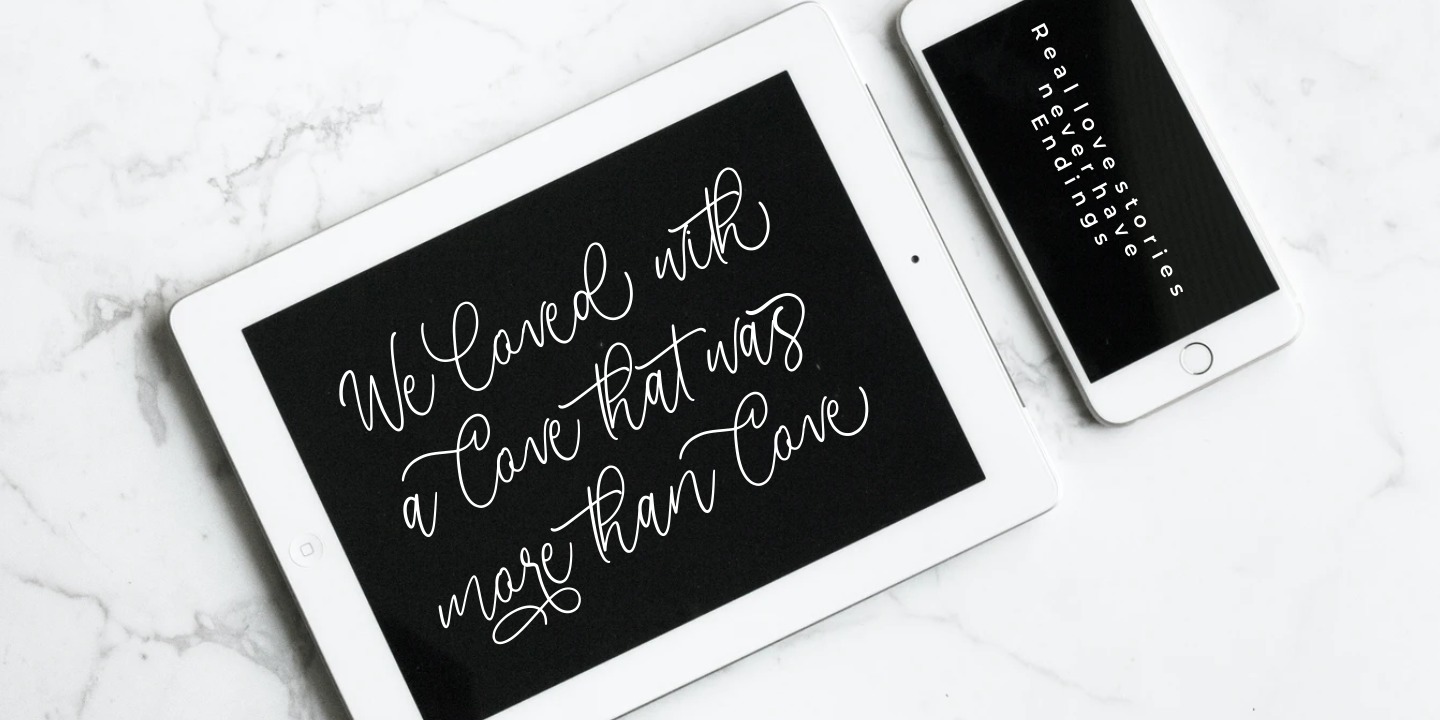 We Loved with
a Love that was
more than Love
Real love stories
never have
Endings